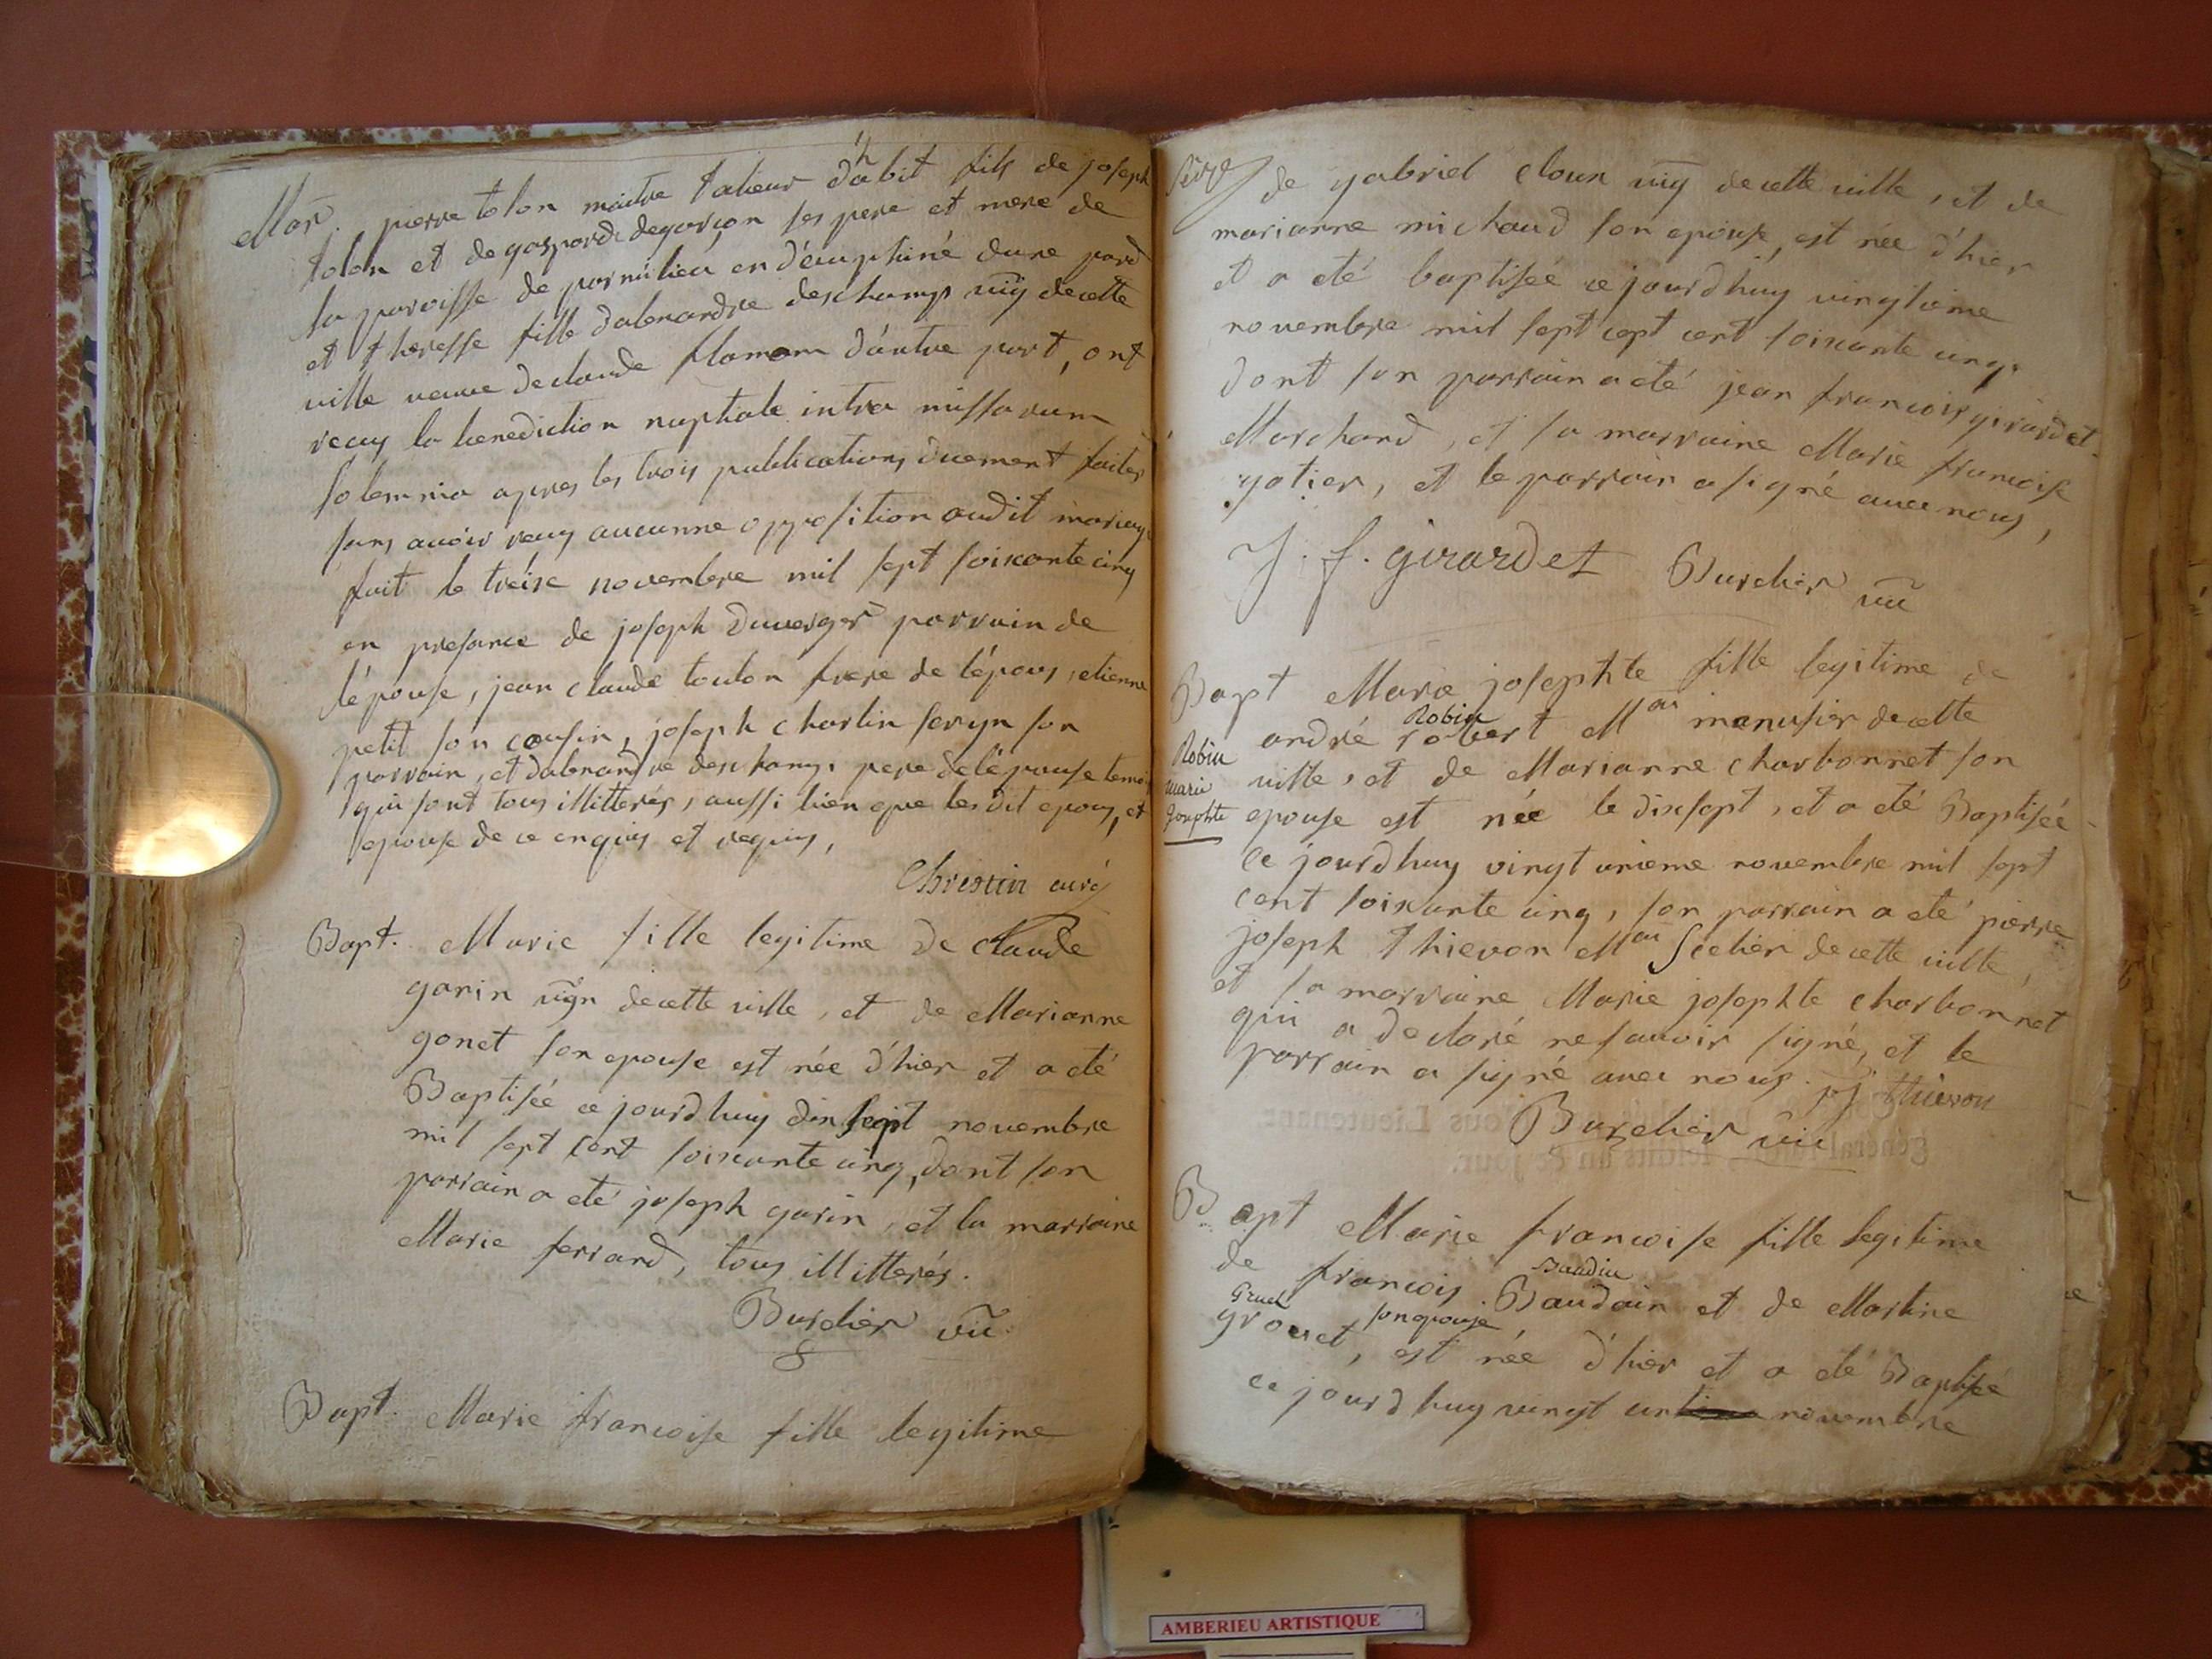 Mar. pierre tolon maitre talieur d'habit fils de joseph
tolon et de gasparde degarçon ses pere et mere de
la paroisse de parmilieu en d'éauphiné dune pard
et theresse fille dalexandre deschamps vig decette
ville veuve declaude flamam d'autre part, ont
reçuy la benediction nuptiale intra missarum
solemnia apres les trois publications duement faites
sans avoir reçuy aucunne opposition audit mariage
fait le treise novembre mil sept soixante cinq
en presance de joseph Duverger parrain de
l'épouse, jean claude toulon frere de l'épous, etienne
petit son cousin, joseph charlin son
parrain, et dalexandre deschamps pere de l'épouse temoins
qui sont tous illitterés, aussi bien que les dit epous, et
epouse de ce enquis et requis,
Chrestin curé
Bapt. Marie fille legitime de Claude
garin vign decette ville, et de Marianne
gonet son epouse est née d'hier et a eté
Baptisée ce jourdhuy dix sept novembre
mil sept cent soixante cinq, dont son
parrain a eté joseph garin, et la marraine
Marie ferrand, tous illitterés.
Burdier vic
Bapt. Marie francoise fille legitime
de gabriel cloux vig decette ville, et de
marianne michaud son epouse, est née d'hier
et a eté baptisée ce jourdhuy vingtieme
novembre mil sept cept cent soixante cinq.
dont son parrain a eté jean francois girardet
Marchand, et sa marraine Marie francoise
gotier, et le parrain a signé avec nous,
J. f. girardet Burdier vic
Bapt Marie josephte fille legitime de
Robin
andré robert Mai manusier decette
Robin
marie
Josephte
ville, et de Marianne charbonnet son
epouse est née le dixsept, et a eté Baptisée
Ce jourdhuy vingt unieme novembre mil sept
cent soixante cinq, son parrain a eté pierre
joseph thievon Mai Scelier decette ville,
et sa marraine Marie josephte charbonnet
qui a declaré nesauoir signé, et le
parrain a signé avec nous. pj thievon
Burdier vic
Bapt Marie francoise fille legitime
Baudin
de francois Baudain et de Martine
Gruel son epouse
grouet, est née d'hier et a eté Baptisée
ce jourdhuy vingt un novembre
AMBERIEU ARTISTIQUE